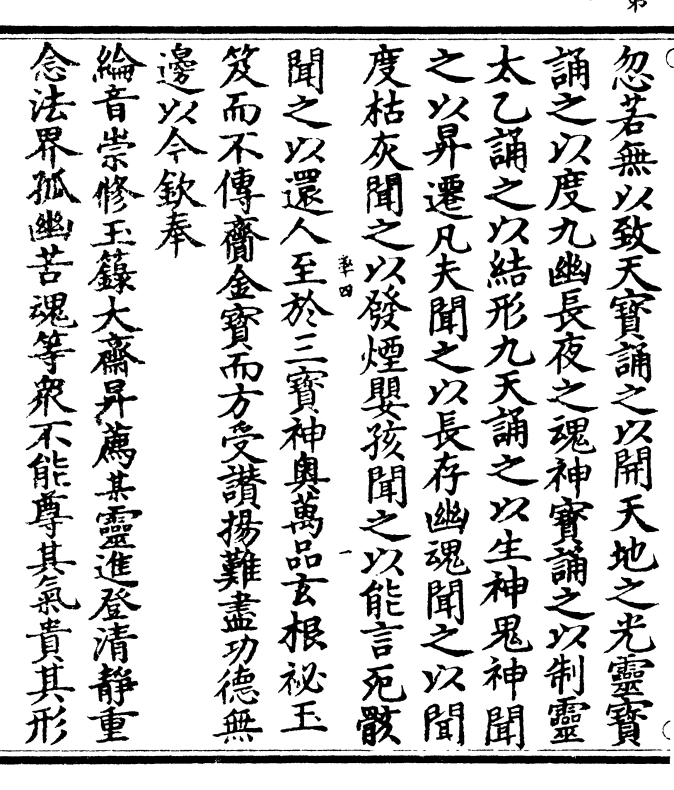 忽若無以致天寶誦之以開天地之光靈寶
誦之以度九幽長夜之魂神寶誦之以制靈
太乙誦之以結形九天誦之以生神鬼神聞
之以昇遷凡夫聞之以長存幽魂聞之以開
度枯灰聞之以發煙嬰孩聞之以能言死骸
聞之以還人至於三寶神奧萬品玄根祕玉
笈而不傳齎金寶而方受讃揚難盡功德無
邊以今欽奉
綸音崇修玉籙大齋昇薦某靈進登清靜重
念法界孤幽苦魂等衆不能尊其氣貴其形